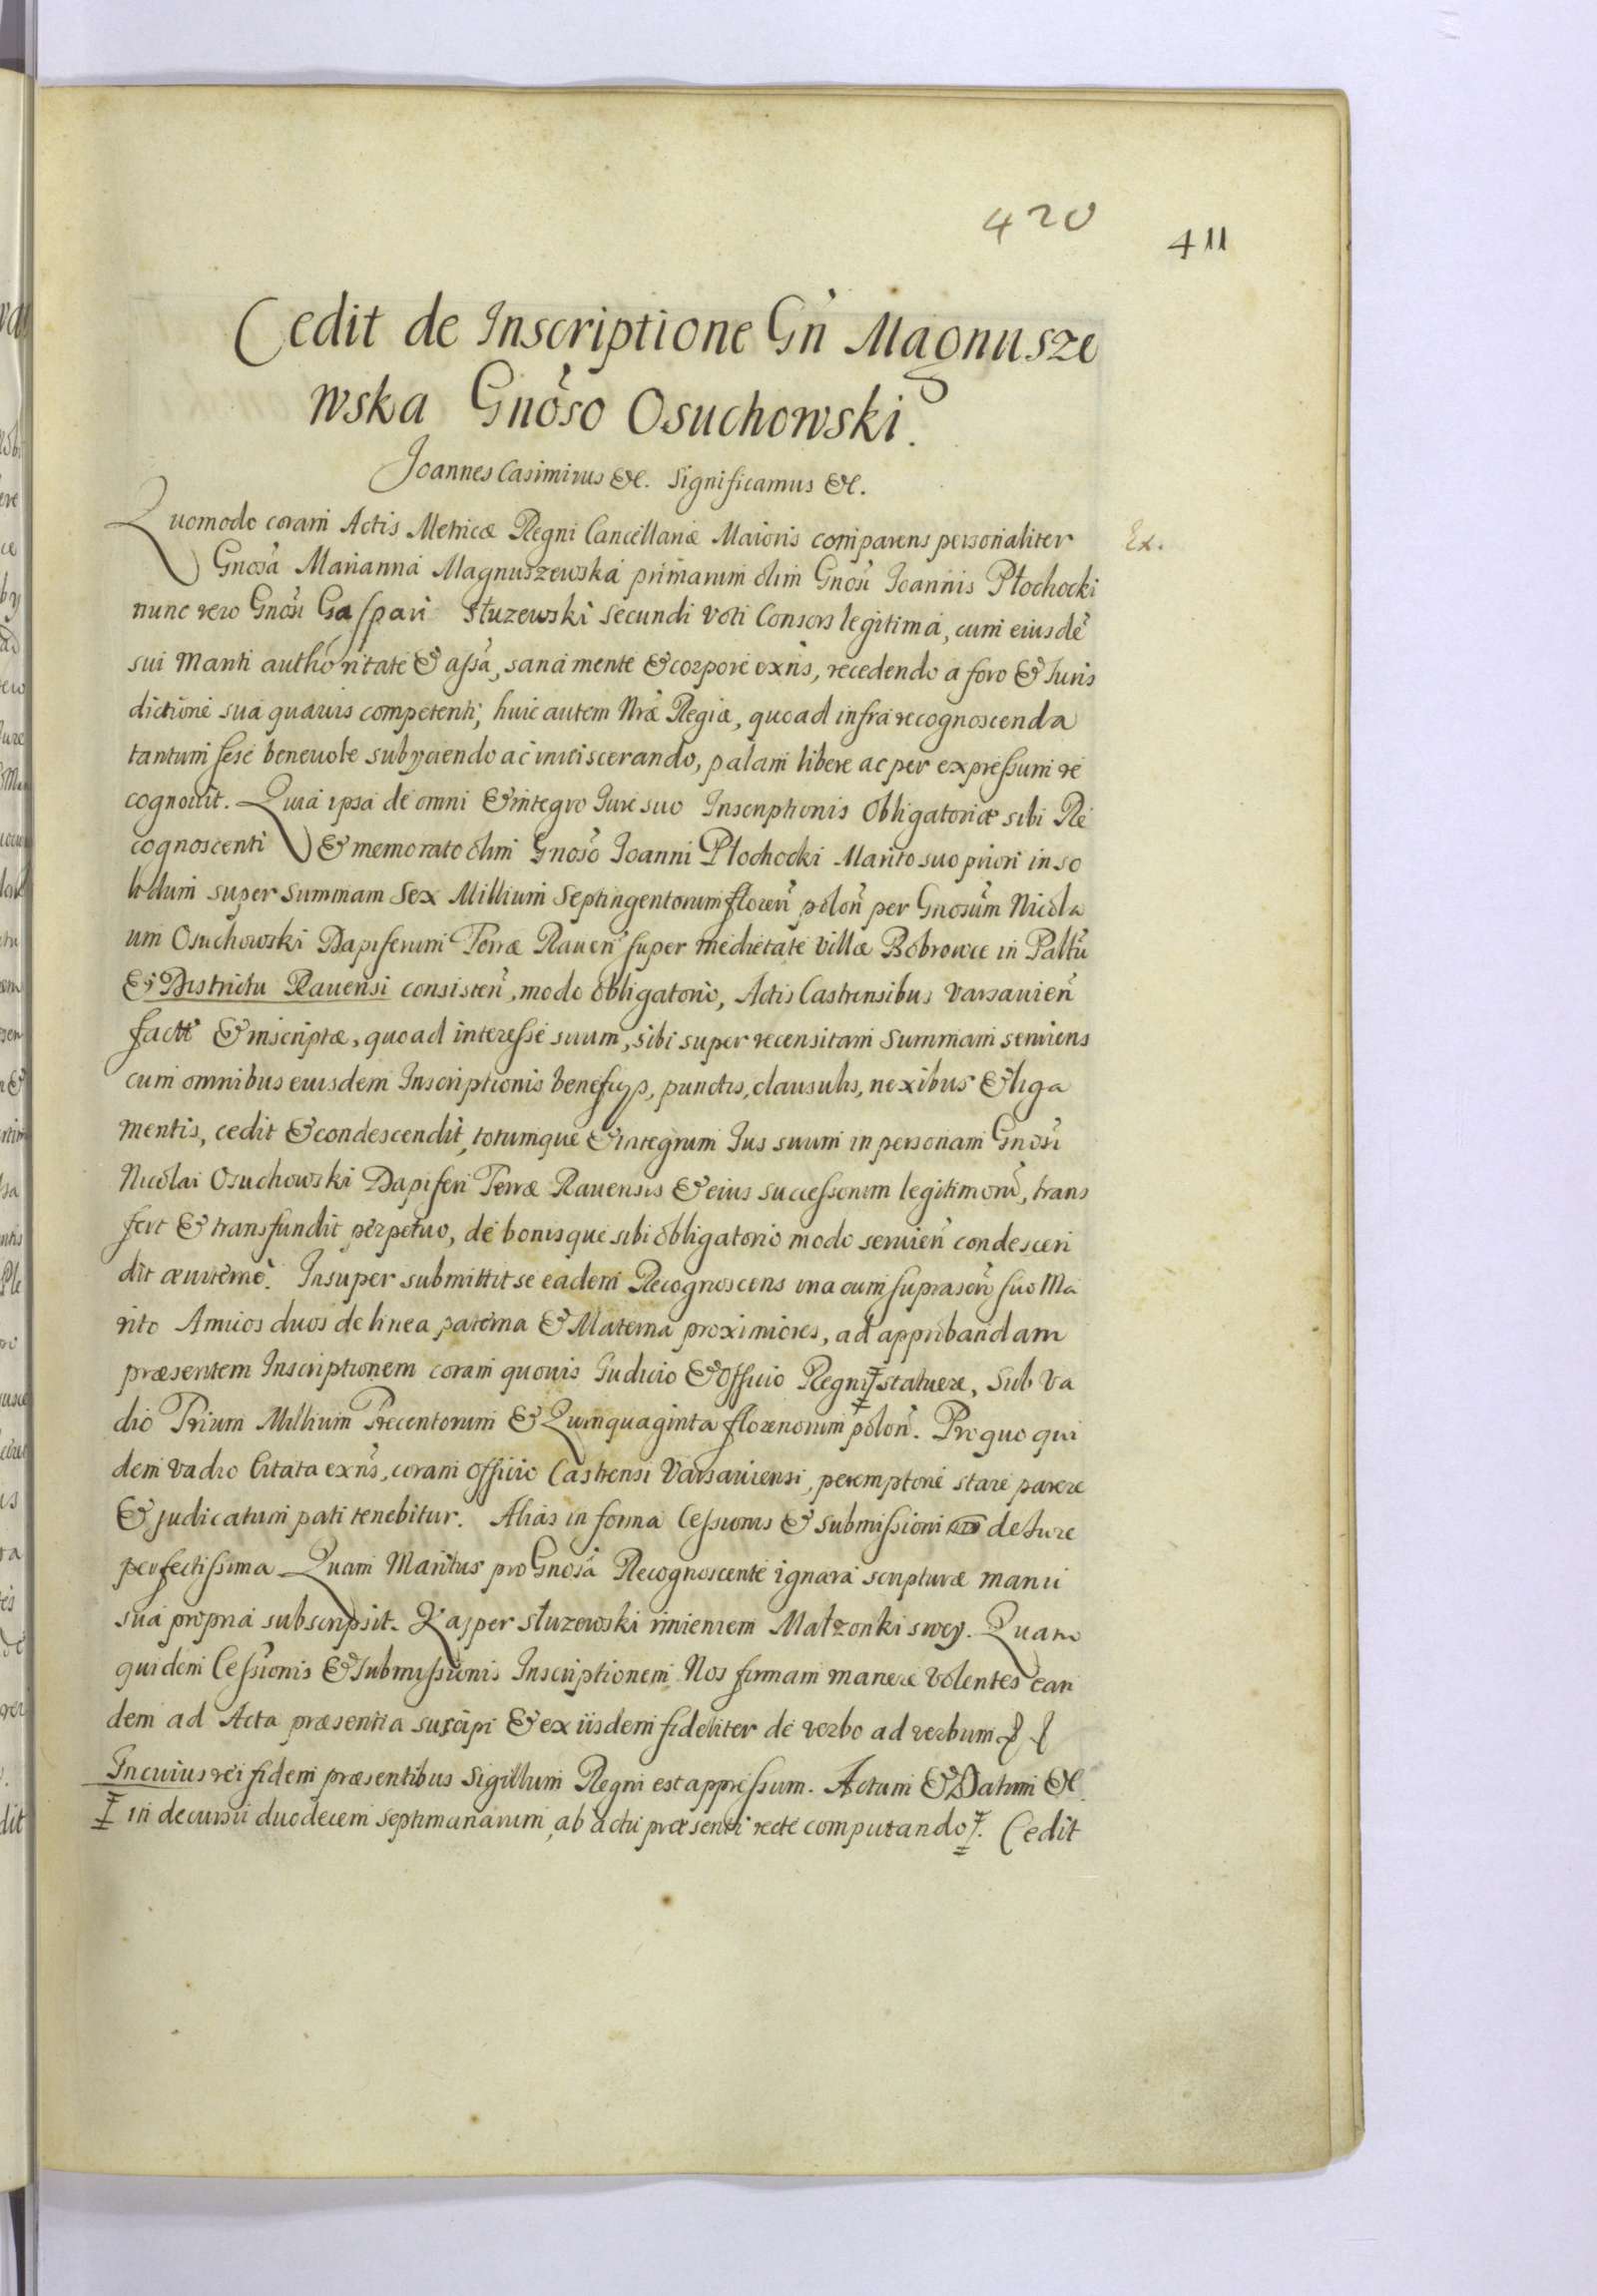 420
411
Cedit de Inscriptione Gń Magnusze
wska Gnõso Osuchowski.
Joannes Casimirus &c. Significamus &c.
Quomodo coram Actis Metricæ Regni Cancellariæ Maioris comparens personaliter
Ex.
Gnosa Marianna Magnuszewska primarum olim Gnosi Joannis Płochocki
nunc vero Gnosi Gaspari Słuzewski secundi voti Consors legitima, cum eiusdẽ
sui Mariti authoritate & assã, sana mente & corpore exñs, recedendo a foro & Iuris
dictione sua quavis competenti, huic autem Nrã Regiæ, quoad infra recognoscenda
tantum sese benevole subyciendo ac inviscerando, palam libere ac per expressum re
cognovit. Quia ipsa de omni & integro Iure suo Inscriptionis Obligatoriæ sibi Re
cognoscenti & memorato olim Gnoso Joanni Płochocki Marito suo priori in so
lidum super summam Sex Millium Septingentorum floreñ poloñ per Gnosum Nicola
um Osuchowski Dapiferum Terræ Raveñ super medietate villæ Bobrowce in Palttũ
& Districtu Ravensi consisteñ, modo obligatorio, Actis Castrensibus Varsavieñ
factæ & inscriptæ, quoad interesse suum, sibi super recensitam Summam serviens
cum omnibus eiusdem Inscriptionis beneficys, punctis, clausulis, nexibus & liga
mentis, cedit & condescendit, totumque & integrum Ius suum in personam Gnosi
Nicolai Osuchowski Dapiferi Terræ Ravensis & eius successorum legitimorũ, trans
fert & transfundit perpetuo, de bonisque sibi obligatorio modo servieñ condescen
dit æviterne. Insuper submittit se eadem Recognoscens una cum suprascrĩ suo Ma
rito Amicos duos de linea paterna & Materna proximiores, ad approbandam
præsentem Inscriptionem coram quovis Iudicio & Officio Regni ǂ statuere, Sub Va
dio Trium Millium Trecentorum & Quinquaginta florenorum poloñ. Pro quo qui
dem vadio Citata exñs, coram officio Castrensi Varsaviensi, peremptorie stare parere
& judicatum pati tenebitur. Alias in forma Cessionis & submissioni de Iure
perfectissima. Quam Maritus pro Gnosa Recognoscente ignara scripturæ manu
sua propria subscripsit. Kasper Słuzewski imieniem Małzonki swey. Quam
quidem Cessionis & Submissionis Inscriptionem Nos firmam manere volentes ean
dem ad Acta præsentia suscipi & ex iisdem fideliter de verbo ad verbum
In cuius rei fidem præsentibus Sigillum Regni est appressum. Actum & Datum &c.
ǂ in decursu duodecem septimanarum, ab actu præsenti recte computando ǂ. Cedit